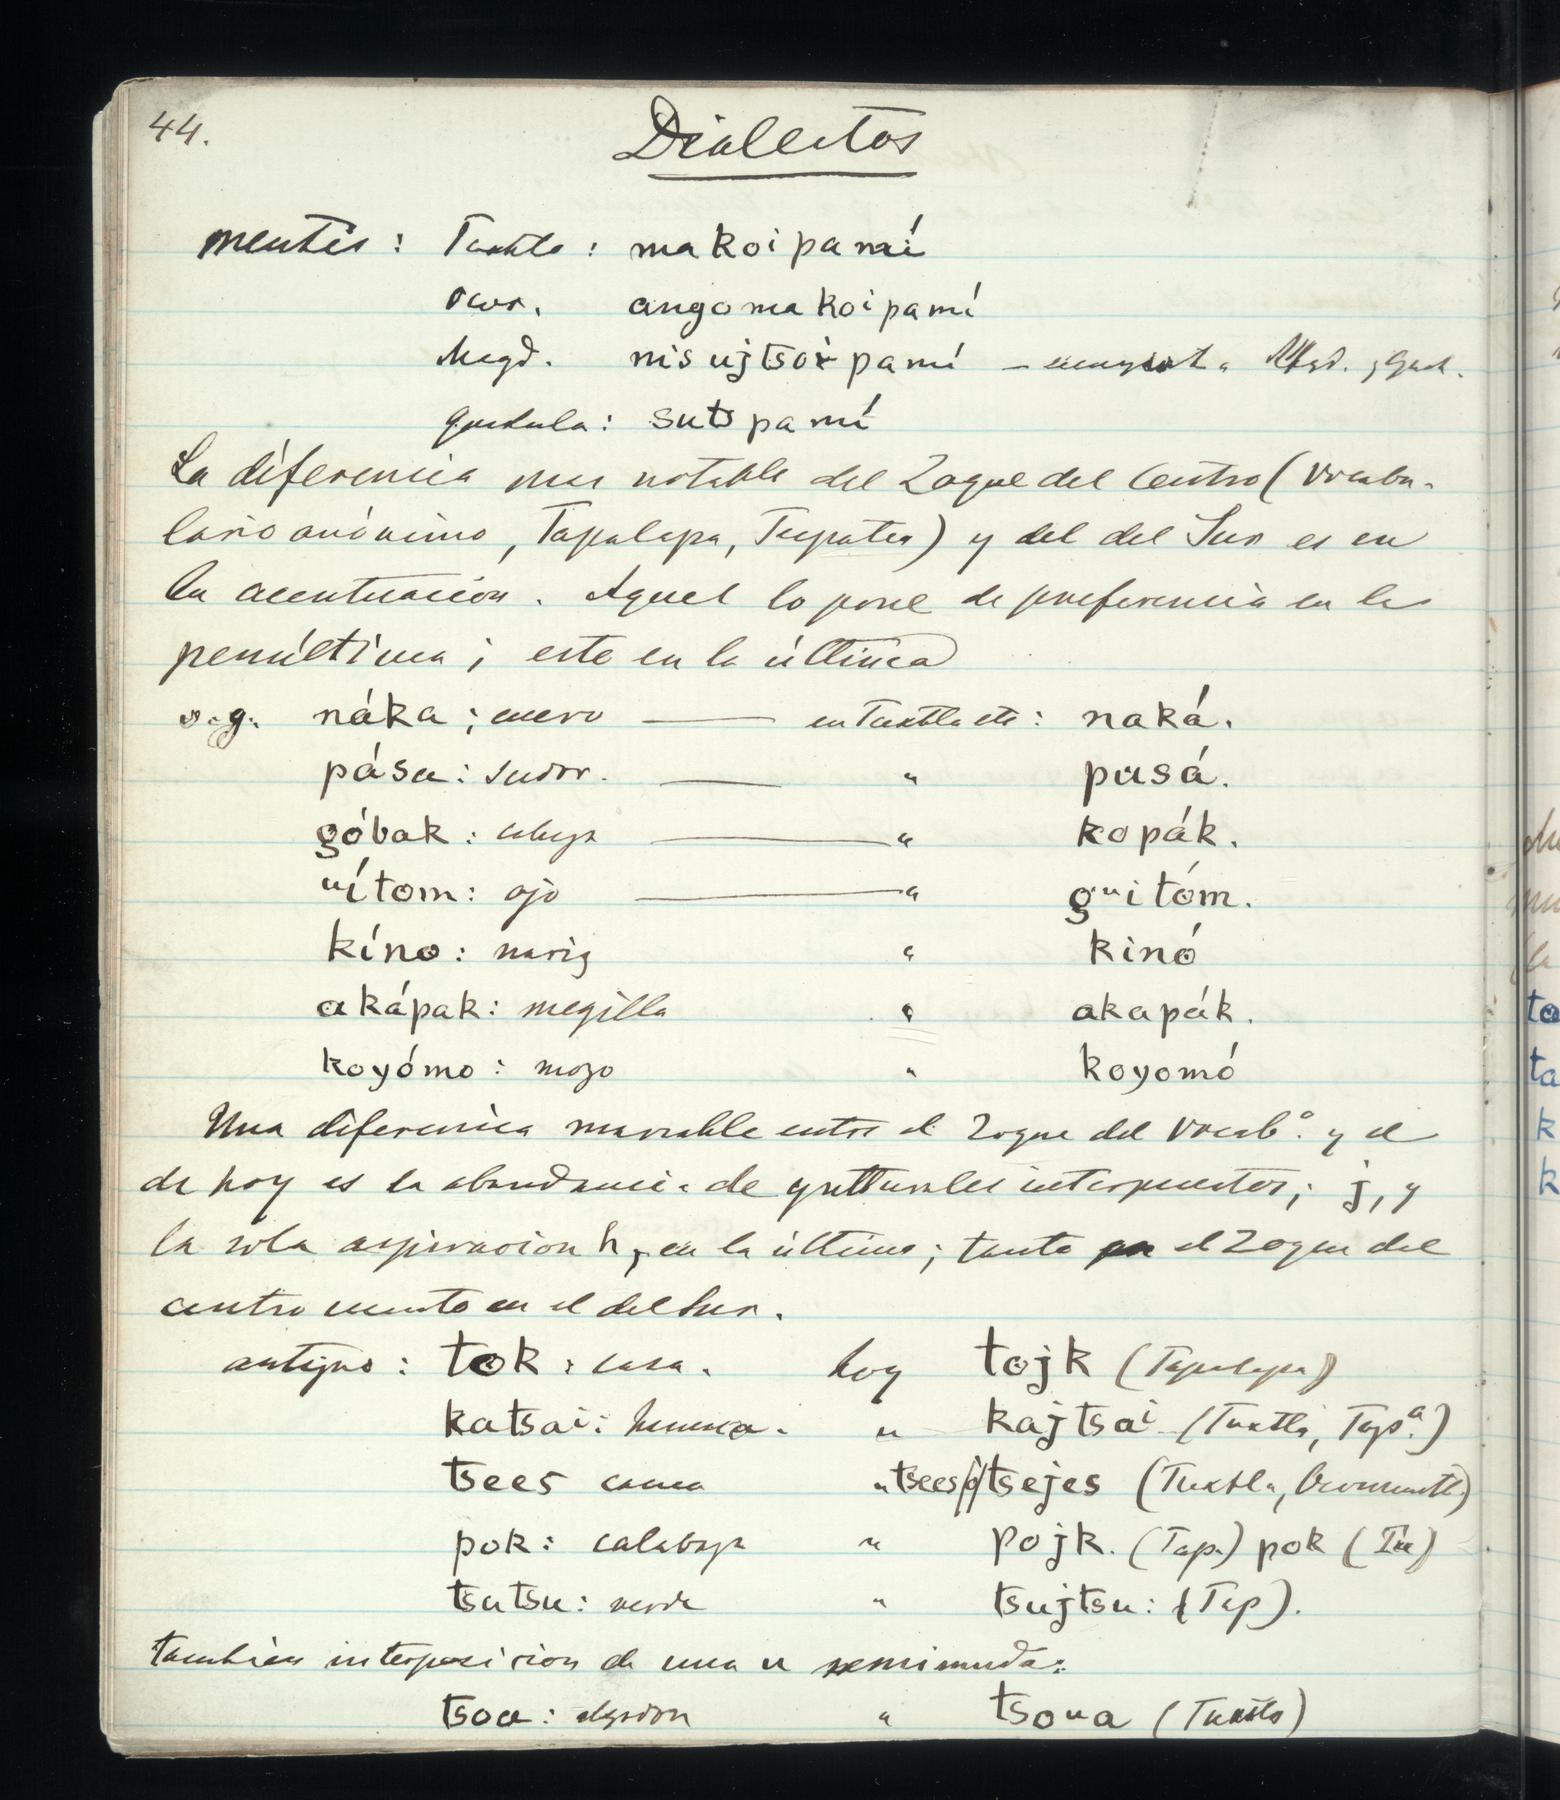 44.
Dialectos
mentis : Tuxtla : makoipamí
Ocoz. angomakoipamí
Magd. nisujtsoipamí — Magd. y Quech.
Quechula : sutspamí
La diferencia mas notable del Zoque del Centro (Vocabu-
lario anónimo, Tapalapa, Tecpatan) y del del Sur es en
la acentuacion. Aquel lo pone de preferencia en la
penúltima ; este en la última
v.g. náka ; cuero — en Tuxtla etc : naká.
pása : sudor. — " pasá.
góbak : cabeza — " kopák.
uítom : ojo — " guitóm.
kíno : nariz " kinó
akápak : megilla " akapák.
koyómo : mozo " koyomó
Una diferencia marcable entre el Zoque del Vocabº. y el
de hoy es la abundancia de gutturales interpuestos; j, y
la sola aspiracion h, en la última; tanto en el Zoque del
centro cuanto en el del Sur.
antiguo : tok : casa. hoy tojk (Tapalapa)
katsai : hamaca. " kajtsai (Tuxtla, Tapª.)
tsees cama " tsees ó tsejes (Tuxtla, Ocozucuautl.)
pok : calabaza " pojk. (Tap.) pok (Tu)
tsutsu : verde " tsujtsu : (Tap).
tambien interposicion de una u semimuda :
tsoa : algodon " tsoua (Tuxtla)
to
ta
k
k